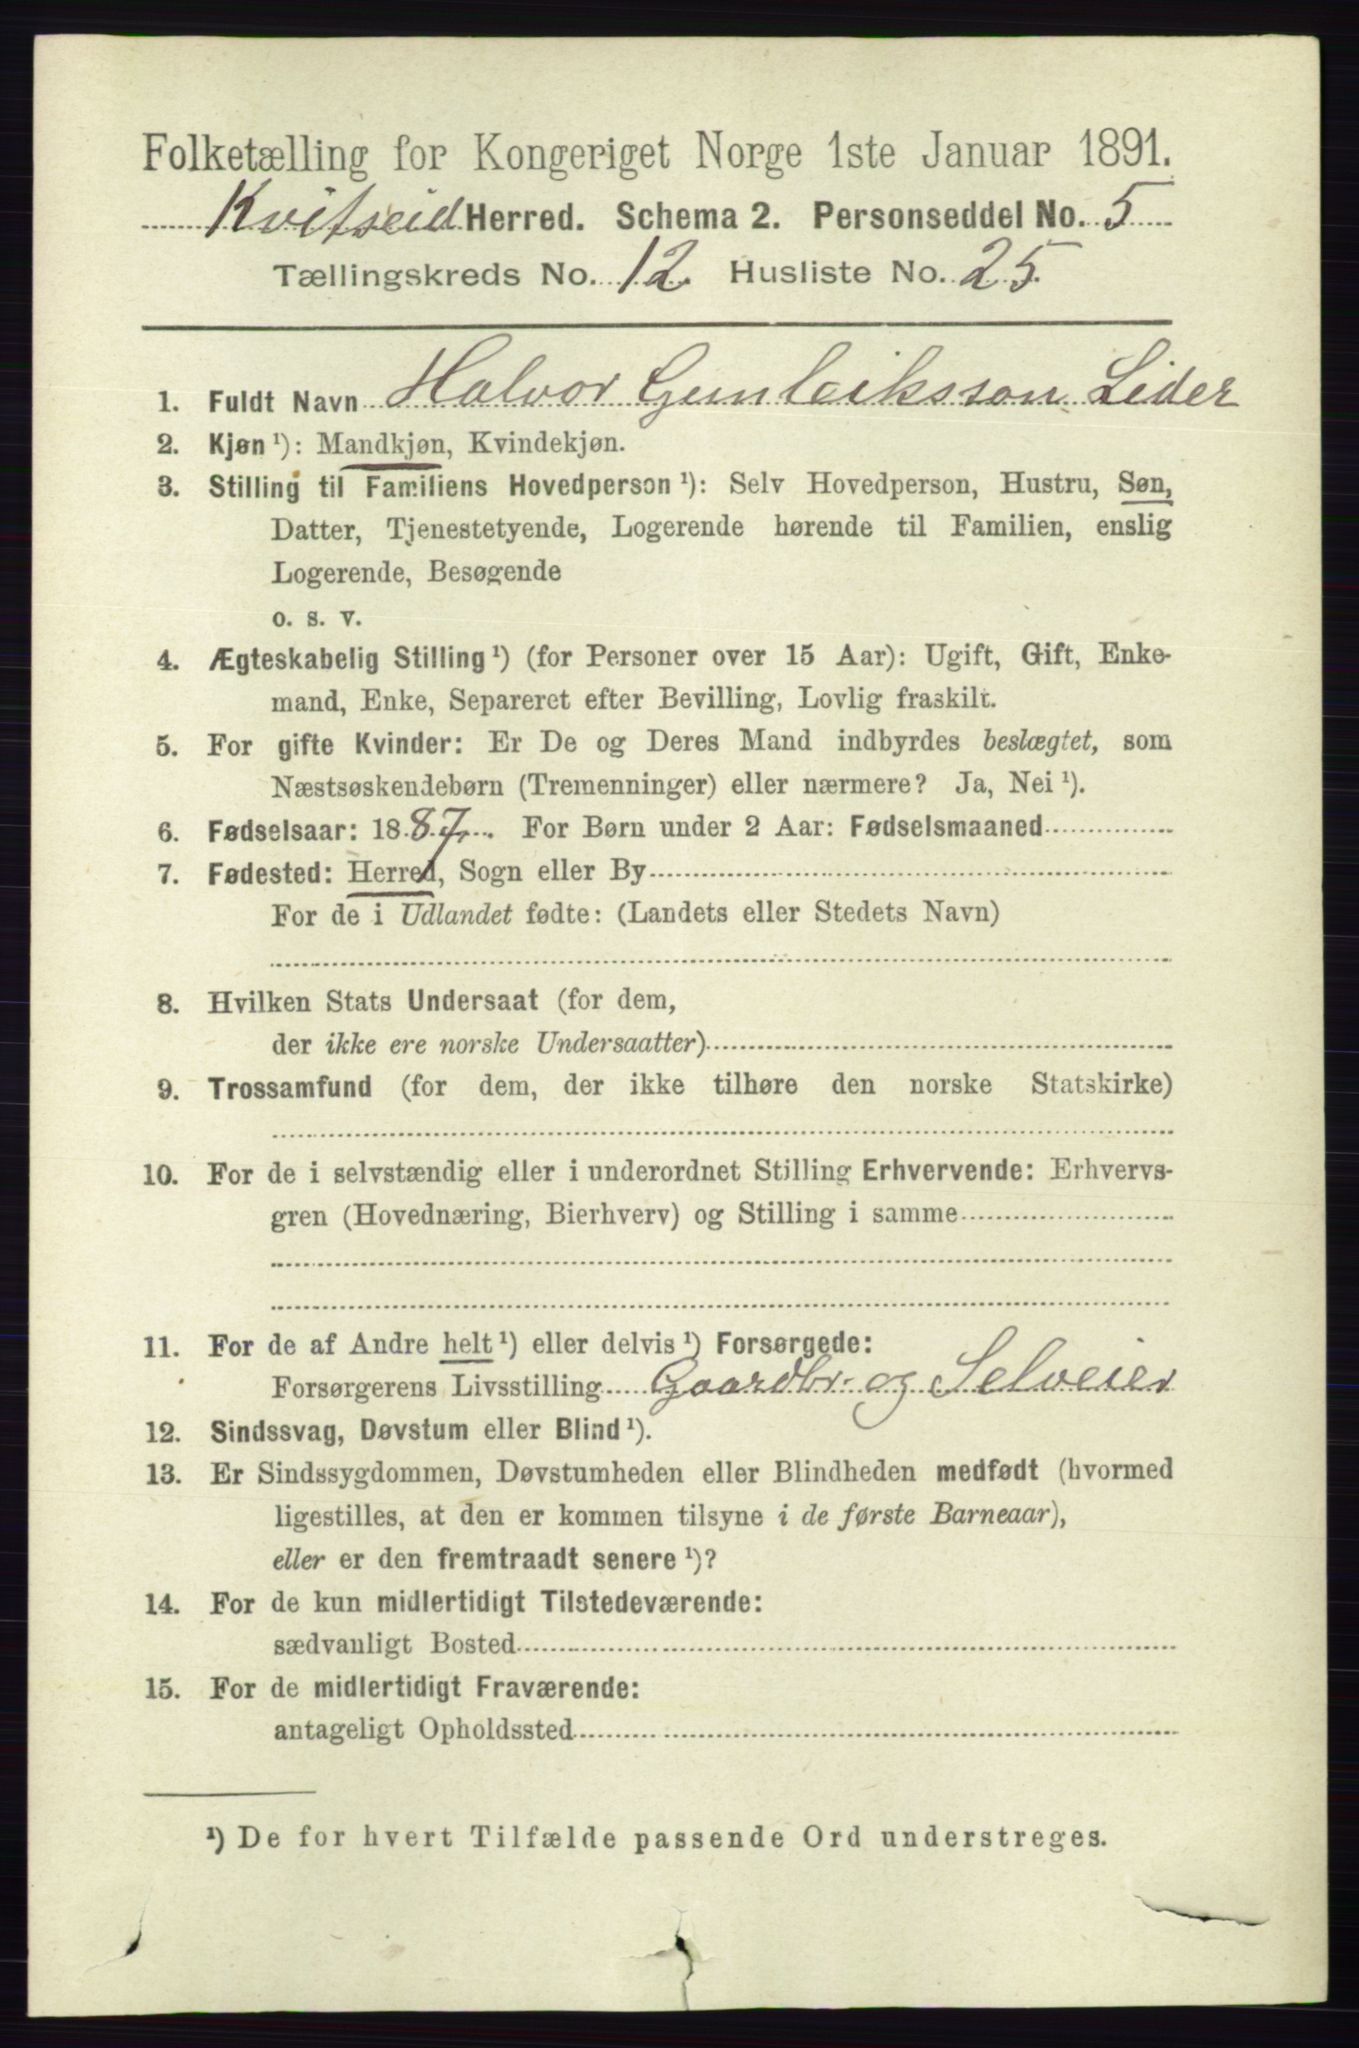 Folketælling for Kongeriget Norge 1ste Januar 1891.
Kvitseid Herred. Schema 2. Personseddel No. 5
Tællingskreds No. 12. Husliste No. 25.
1. Fuldt Navn Halvor Gunleiksson Lider
2. Kjøn ¹): Mandkjøn, Kvindekjøn.
3. Stilling til Familiens Hovedperson ¹): Selv Hovedperson, Hustru, Søn,
Datter, Tjenestetyende, Logerende hørende til Familien, enslig
Logerende, Besøgende
o. s. v.
4. Ægteskabelig Stilling ¹) (for Personer over 15 Aar): Ugift, Gift, Enke-
mand, Enke, Separeret efter Bevilling, Lovlig fraskilt.
5. For gifte Kvinder: Er De og Deres Mand indbyrdes beslægtet, som
Næstsøskendebørn (Tremenninger) eller nærmere? Ja, Nei ¹).
6. Fødselsaar: 1887. For Børn under 2 Aar: Fødselsmaaned
7. Fødested: Herred, Sogn eller By
For de i Udlandet fødte: (Landets eller Stedets Navn)
8. Hvilken Stats Undersaat (for dem,
der ikke ere norske Undersaatter)
9. Trossamfund (for dem, der ikke tilhøre den norske Statskirke)
10. For de i selvstændig eller i underordnet Stilling Erhvervende: Erhvervs-
gren (Hovednæring, Bierhverv) og Stilling i samme
11. For de af Andre helt ¹) eller delvis ¹) Forsørgede:
Forsørgerens Livsstilling Gaardbr. og Selveier
12. Sindssvag, Døvstum eller Blind ¹).
13. Er Sindssygdommen, Døvstumheden eller Blindheden medfødt (hvormed
ligestilles, at den er kommen tilsyne i de første Barneaar),
eller er den fremtraadt senere ¹)?
14. For de kun midlertidigt Tilstedeværende:
sædvanligt Bosted
15. For de midlertidigt Fraværende:
antageligt Opholdssted
¹) De for hvert Tilfælde passende Ord understreges.